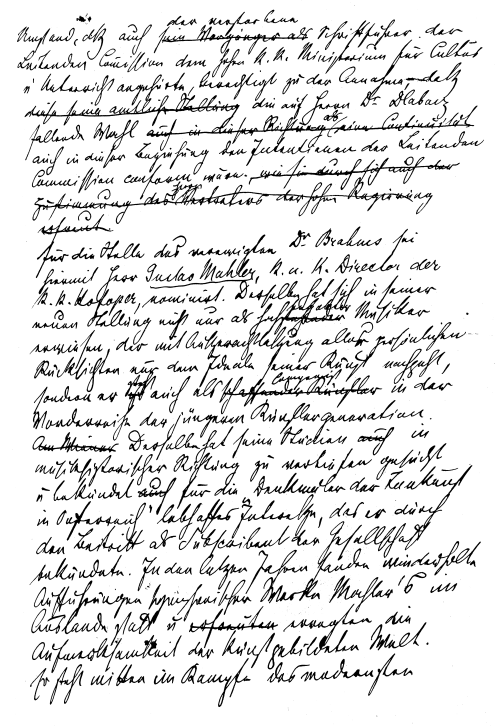 der verstorbene
Umstand, daß auch sein Vorgänger als Schriftführer der
Leitenden Commission dem hohen K. K. Ministerium für Cultus
u Unterricht angehörte, berechtigt zu der Annahme daß
diese seine amtliche Stellung die auf Herrn Dr. Dlabač
fallende Wahl auch in dieser Richtung als eine Continuität
auch in dieser Beziehung den Intentionen der Leitenden
Commission conform wäre. wie sie durch sich auch der
Zustimmung des Vertreters der hohen Regierung
erfreut.
Für die Stelle des verewigten Dr Brahms sei
hiermit Herr Gustav Mahler, K. u. K. Director der
K. K. Hofoper, nominirt. Derselbe hat sich in seiner
neuen Stellung nicht nur als Musiker
erwiesen, der mit Außerachtlassung aller persönlichen
Rücksichten nur dem Ideale seiner Kunst nachgeht,
Componist
sondern er auch als schaffender Künstler in der
Vorderreihe der jüngeren Künstlergeneration.
Derselbe hat seine Studien auch in
musikhistorischer Richtung zu vertiefen gesucht
u bekundet auch für die „Denkmäler der Tonkunst
in Österreich" lebhaftes Interesse, das er durch
den Beitritt als Subscribent der Gesellschaft
bekundete. In den letzten Jahren fanden wiederholte
Aufführungen symphonischer Werke Mahler's im
Auslande statt u erregten die
Aufmerksamkeit der kunstgebildeten Welt.
Er steht mitten im Kampfe des modernsten